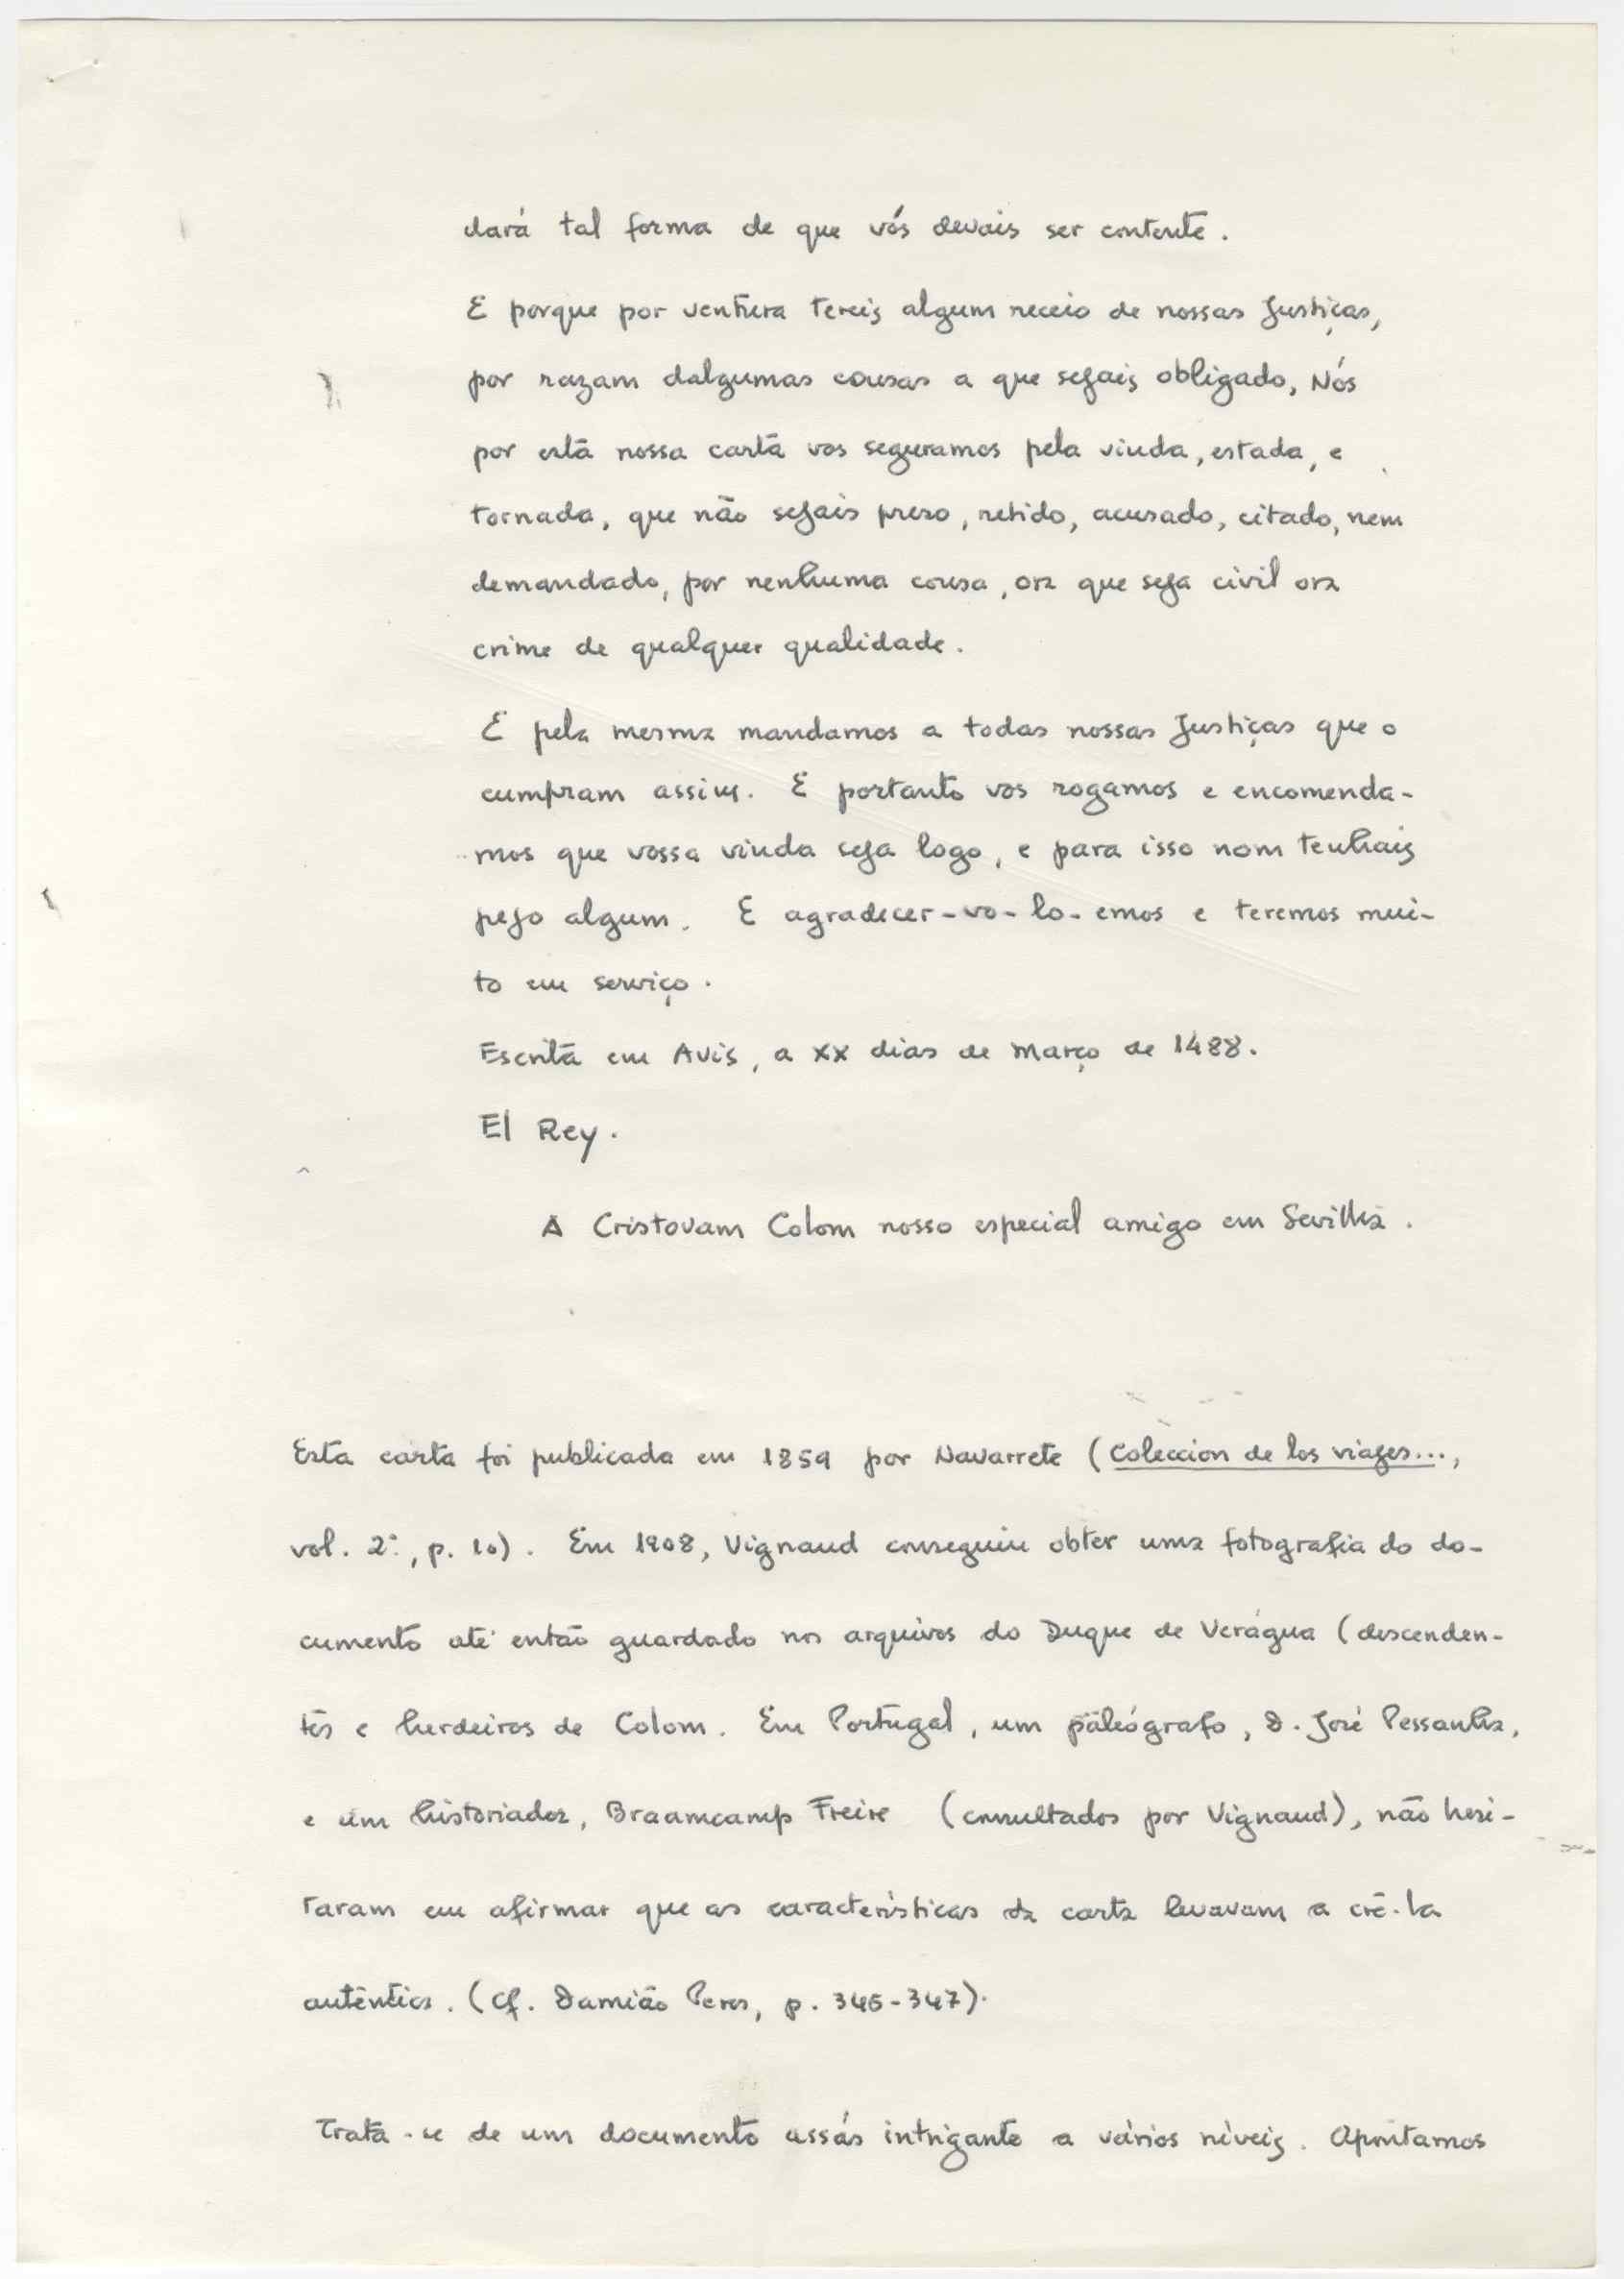 dará tal forma de que vós devais ser contente.
E porque por ventura tereis algum receio de nossas Justiças,
por razam dalgumas cousas a que sejais obligado, Nós
por esta nossa carta vos seguramos pela vinda, estada, e
tornada, que não sejais preso, retido, acusado, citado, nem
demandado, por nenhuma cousa, ora que seja civil ora
crime de qualquer qualidade.
E pela mesma mandamos a todas nossas Justiças que o
cumpram assim. E portanto vos rogamos e encomenda-
mos que vossa vinda seja logo, e para isso nom tenhais
pejo algum. E agradecer-vo-lo-emos e teremos mui-
to em serviço.
Escrita em Avis, a XX dias de Março de 1488.
El Rey.
A Cristovam Colom nosso especial amigo em Sevilha.
Esta carta foi publicada em 1859 por Navarrete (Coleccion de los viajes...,
vol. 2º, p. 10). Em 1908, Vignaud conseguiu obter uma fotografia do do-
cumento até então guardado nos arquivos do Duque de Verágua (descenden-
tes e herdeiros de Colom. Em Portugal, um paleógrafo, D. José Pessanha,
e um historiador, Braamcamp Freire (consultados por Vignaud), não hesi-
taram em afirmar que as características da carta levavam a crê-la
autêntica. (Cf. Damião Peres, p. 346-347).
Trata-se de um documento assás intrigante a vários níveis. Apontamos